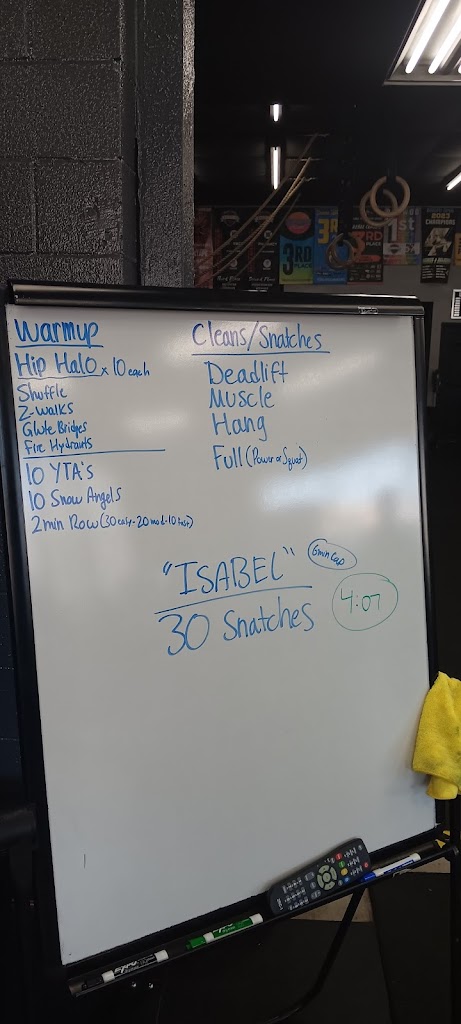 Warmup
Hip Halo x 10 each
Shuffle
Z-walks
Glute Bridges
Fire Hydrants
10 YTA's
10 Snow Angels
2min Row (30 easy - 20 mod - 10 fast)
Cleans/Snatches
Deadlift
Muscle
Hang
Full (Power or Squat)
"ISABEL"
6min Cap
30 Snatches
4:07
3RD
PLACE
3RD
PLACE
1st
2023
CHAMPIONS
EXPO